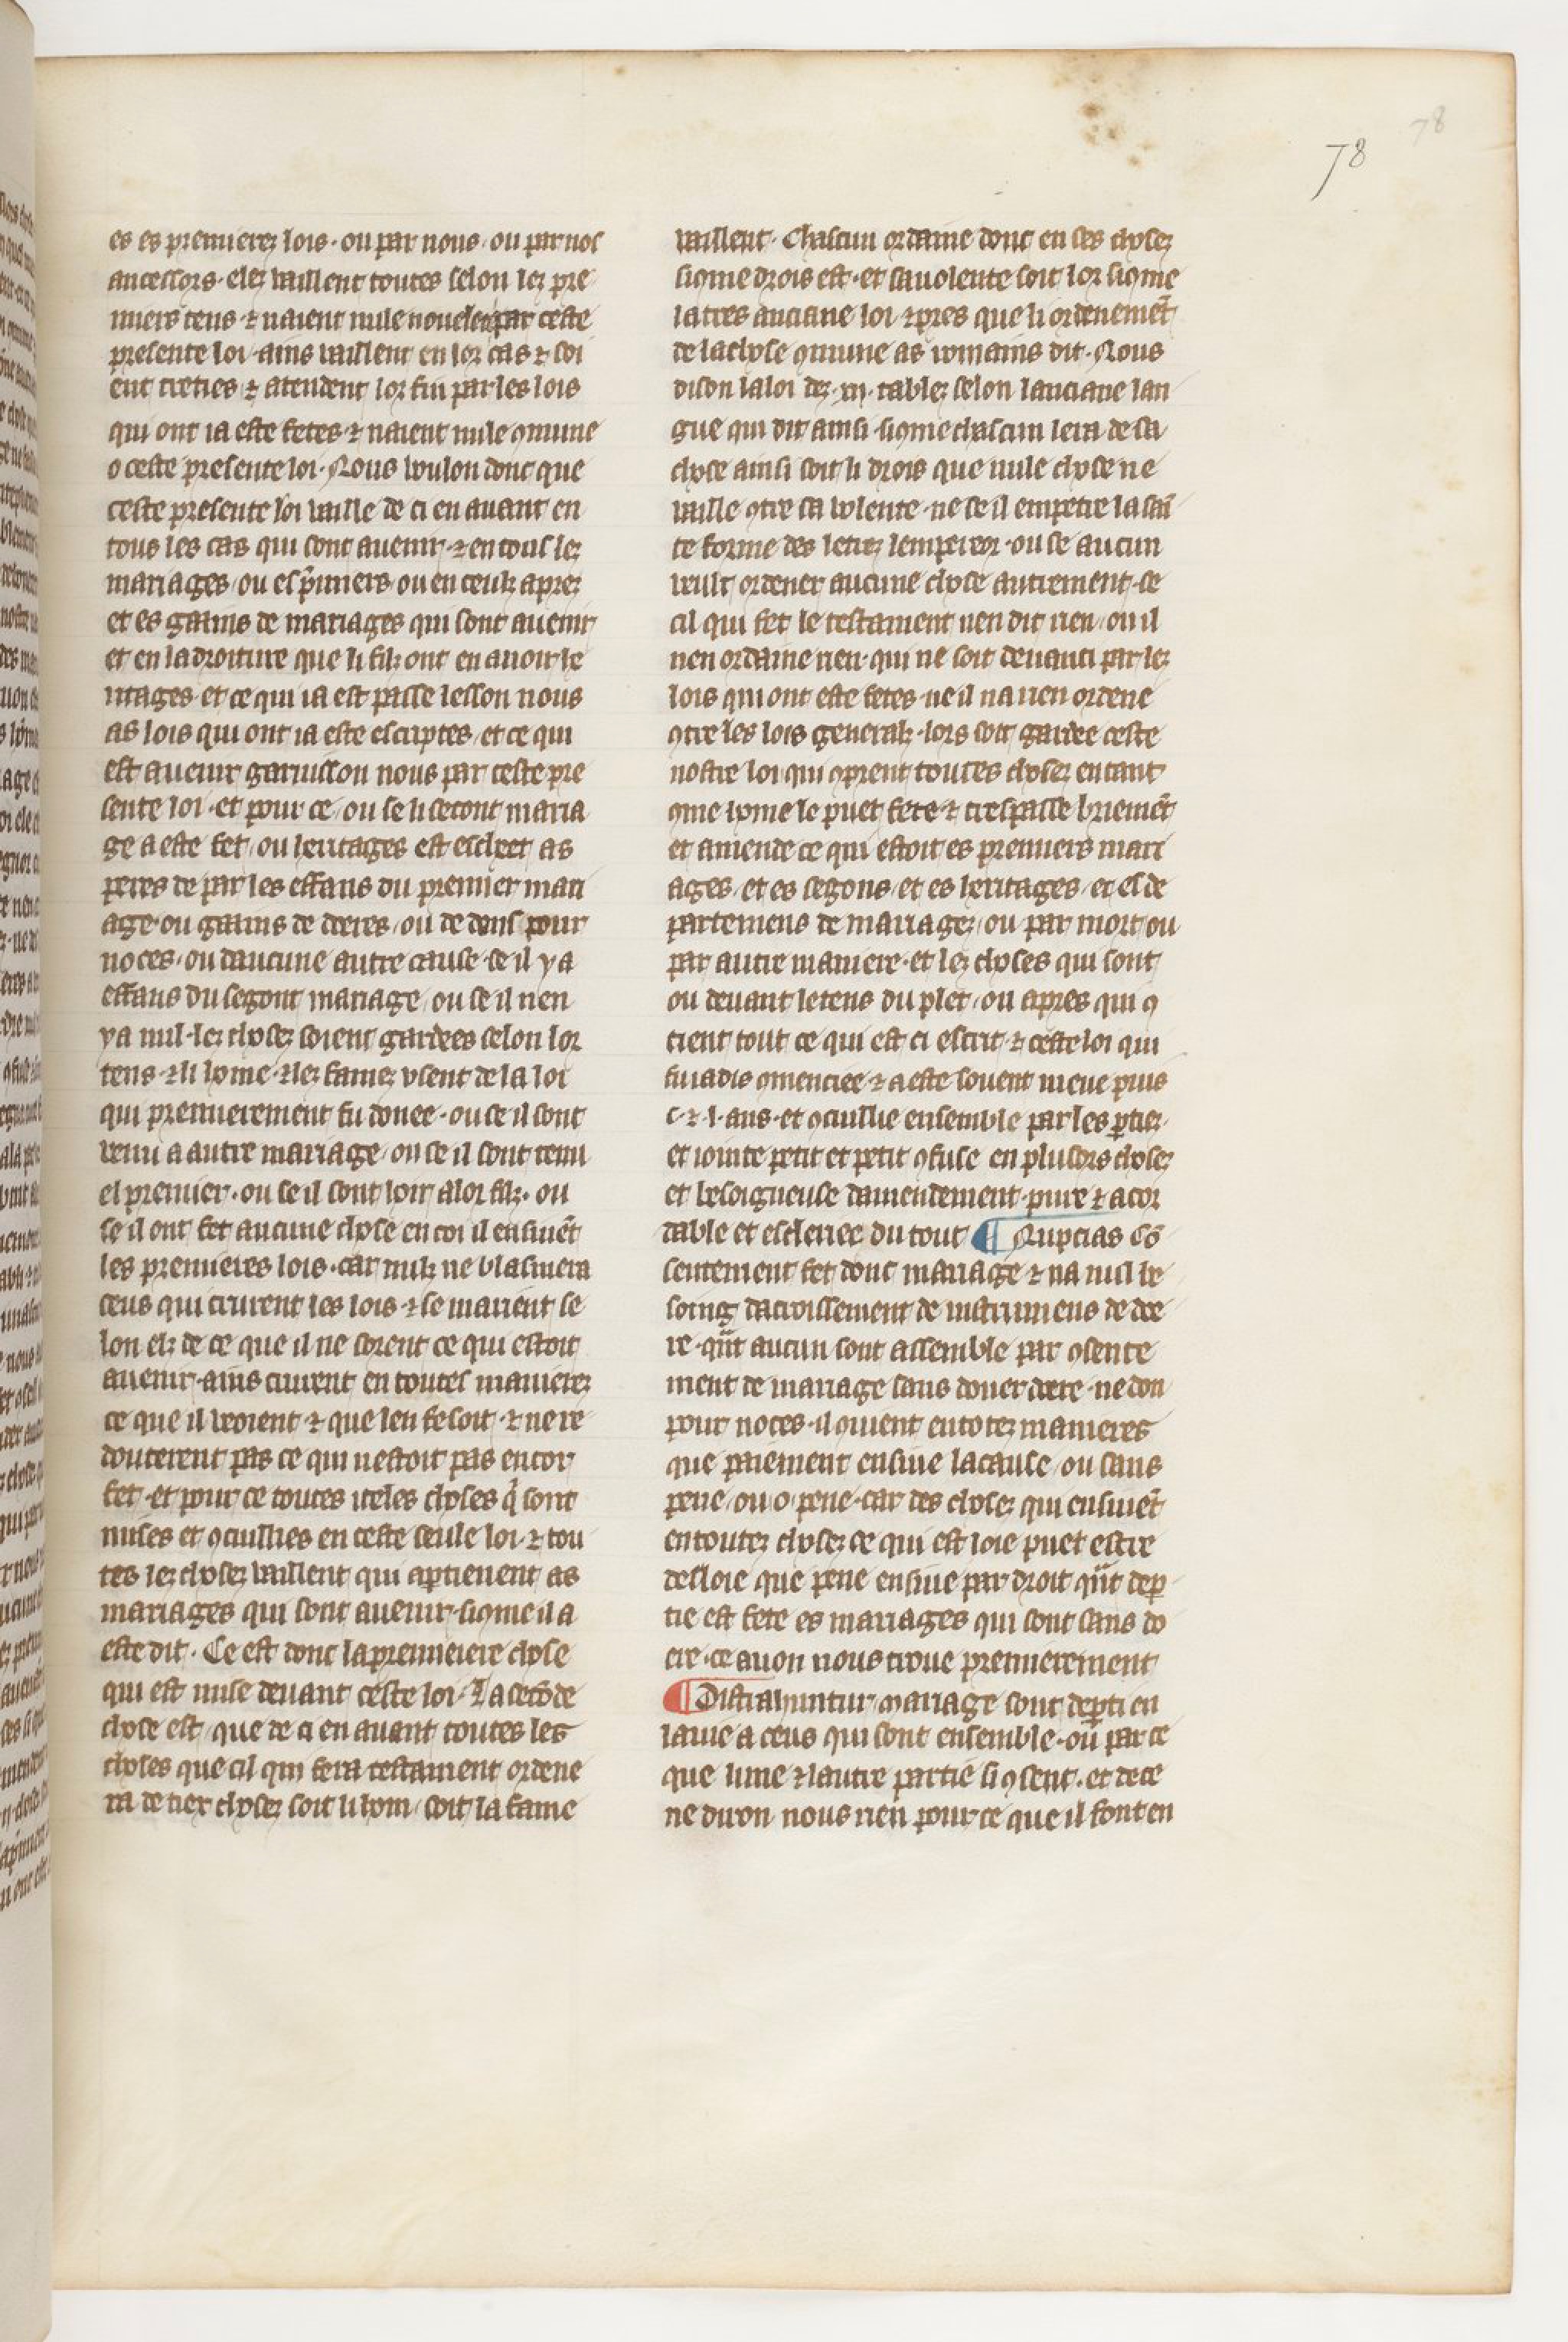 78
78
es es premierez lois · ou par nous · ou par nos
ancessors · elez vaillent toutes selon lez pre
miers tens · ⁊ naient nule nouelete par ceste
presente loi · ains vaillent en lor cas ⁊ soi
ent treties ⁊ atendent lor fin par les lois
qui ont ia este fetes · ⁊ naient nule ꝯmune
o ceste presente loi · Nous voulon donc que
ceste presente loi vaille de ci en auant en
tous les cas qui sont auenir · ⁊ en tous lez
mariages / ou es p̃miers / ou en ceulz aprez
et es gaains de mariages qui sont auenir
et en la droiture que li filz ont en auoir he
ritages · et ce qui ia est passe lesson nous
as lois qui ont ia este escriptes / et ce qui
est auenir garnisson nous par ceste pre
sente loi · et pour ce / ou se li secont maria
ge a este fet / ou heritages est escheet as
peres de par les effans du premier mari
age · ou gaains de doeres / ou de dons pour
noces · ou daucune autre cause · se il y a
effans du segont mariage / ou se il nen
ya nul · lez chosez soient gardees selon lor
tens · ⁊ li home · ⁊ lez famez vsent de la loi
qui premierement fu donee · ou se il sont
venu a autre mariage / ou se il sont tenu
el premier · ou se il sont hoir a lor filz · ou
se il ont fet aucune chose en coi il ensiuẽt
les premieres lois · car nulz ne blasmera
ceus qui crurent les lois · ⁊ se marient se
lon elz de ce que il ne sorent ce qui estoit
auenir · ains crurent en toutes manierez
ce que il veoient · ⁊ que len fesoit · ⁊ ne re
douterent pas ce qui nestoit pas encor
fet · et pour ce toutes iteles choses q̃ sont
mises et ꝯcuillies en ceste seule loi · ⁊ tou
tes lez chosez vaillent qui aptienent as
mariages qui sont auenir · si ꝯme il a
este dit · Ce est donc la premeiere chose
qui est mise deuant ceste loi · La secõde
chose est / que de ci en auant toutes les
choses que cil qui fera testament ordene
ra de tiex chosez soit li hom / soit la fame
vaillent · Chascun ordaine donc en ses chosez
si ꝯme drois est · et sa uolente soit loi · si ꝯme
la tres anciane loi · ⁊ pres que li ordenemẽt
de la chose ꝯmune as romains dit · Nous
dison la loi dez · xii · tablez selon lanciane lan
gue qui dit ainsi · si ꝯme chascun lera de sa
chose ainsi soit li drois que nule chose ne
vaille ꝯtre sa volente · ne se il empetre la sai
te forme des letrez lempereor · ou se aucun
veult ordener aucune chose autrement · se
cil qui fet le testament nen dit rien / ou il
nen ordaine rien · qui ne soit deuanci par lez
lois qui ont este fetes · ne il na rien ordene
ꝯtre les lois generalz · lors soit gardee ceste
nostre loi qui ꝯprent toutes chosez en tant
ꝯme home le puet fere · ⁊ trespasse briemẽt
et amende ce qui estoit es premiers mari
ages / et es segons / et es heritages / et es de
partemens de mariagez / ou par mort / ou
par autre maniere · et lez choses qui sont
ou deuant le tens du plet / ou apres qui ꝯ
tient tout ce qui est ci escrit · ⁊ ceste loi qui
fu iadis ꝯmenciee · ⁊ a este souent mene puis
c · ⁊ · l · ans · et ꝯcuillie ensemble par les ꝑties ·
et iointe petit et petit ꝯfuse en plusors chosez
et besoigneuse damendement · pure ⁊ acor
dable et esclerie du tout ¶ Nupcias cõ
sentement fet donc mariage · ⁊ na nul be
soing dacroissement de instrumens de doe
re · qũt aucun sont assemble par ꝯsente
ment de mariage sans doner doere · ne don
pour noces · il ꝯuient en totez manieres
que paiement ensiue la cause / ou sans
pene / ou o pene · car des chosez qui ensiuẽt
en toutez chosez ce qui est loie puet estre
desloie que pene ensiue par droit qũt dep
tie est fete es mariages qui sont sans do
ere · ce auon nous troue premierement
¶ Distrahuntur · mariage sont deꝑti en
la uie a ceus qui sont ensemble · ou par ce
que lune ⁊ lautre partie si ꝯsent · et de ce
ne diron nous rien pour ce que il font en